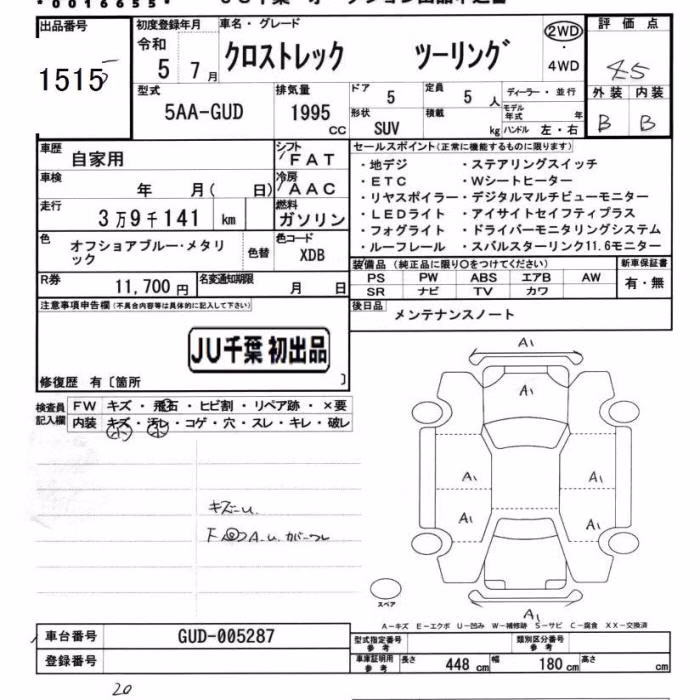 *0016655*
出品番号 初度登録年月 車名・グレード 評価点
令和 5年 7月 クロストレック ツーリング 2WD・4WD 4.5
1515
外装 内装
B B
型式 排気量 ドア 5 定員 5人 ディーラー・並行
5AA-GUD 1995 CC 形状 SUV 積載 kg モデル年式 年
ハンドル 左・右
車歴 自家用 シフト FAT セールスポイント(正常に機能するものに限ります)
車検 年 月( 日) 冷房 AAC
走行 3万9千141 km 燃料 ガソリン
・地デジ ・ステアリングスイッチ
・ETC ・Wシートヒーター
・リヤスポイラー・デジタルマルチビューモニター
・LEDライト ・アイサイトセイフティプラス
・フォグライト ・ドライバーモニタリングシステム
・ルーフレール ・スバルスターリンク11.6モニター
色 オフショアブルー・メタリック 色替 色コード XDB
R券 11,700円 名変通知期限 月 日
装備品(純正品に限り○をつけてください) 新車保証書
PS PW ABS エアB AW 有・無
SR ナビ TV カワ
注意事項申告欄(不具合内容等は具体的に記入して下さい)
後日品 メンテナンスノート
JU千葉 初出品
修復歴 有〔箇所 〕
検査員記入欄 FW キズ・飛石・ヒビ割・リペア跡・×要
内装 キズ・汚レ・コゲ・穴・スレ・キレ・破レ
キズ-u.
A1
A1
A1 A1
A1 A1
A1
スペア
A-キズ E-エクボ U-凹み W-補修跡 S-サビ C-腐食 XX-交換済
車台番号 GUD-005287 型式指定番号 参考 類別区分番号 参考
登録番号 車庫証明用 参考 長さ 448 cm 幅 180 cm 高さ cm
20